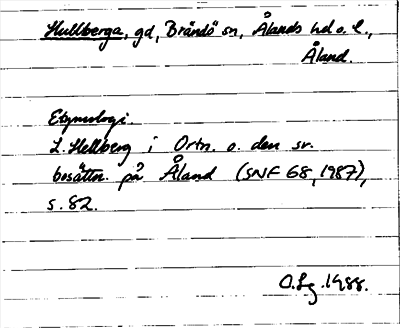 Hullberga, gd, Brändö sn, Ålands hd o. l.,
Åland.
Etymologi.
L. Hellberg i Ortn. o. den sv.
bosättn. på Åland (SNF 68, 1987),
s. 82.
O.Lg. 1988.